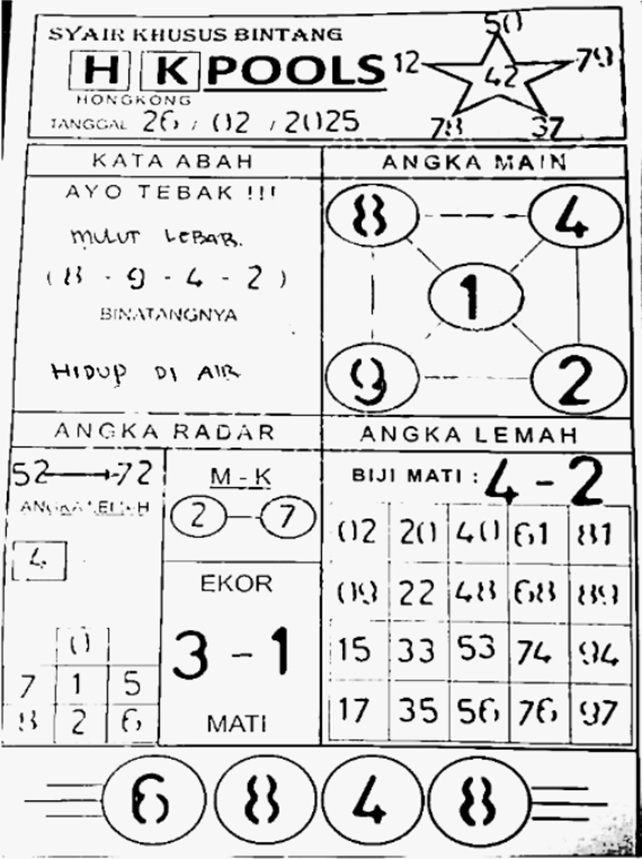 SYAIR KHUSUS BINTANG
H K POOLS
HONGKONG
TANGGAL 26 / 02 / 2025
50
12 42 79
78 37
KATA ABAH
AYO TEBAK !!!
MULUT LEBAR.
( 8 - 9 - 4 - 2 )
BINATANGNYA
HIDUP DI AIR
ANGKA MAIN
8 4
1
9 2
ANGKA RADAR
52 72
ANGKA LEMAH
4
0
7 1 5
8 2 6
M - K
2 7
EKOR
3 - 1
MATI
ANGKA LEMAH
BIJI MATI : 4 - 2
02 20 40 61 81
09 22 48 68 89
15 33 53 74 94
17 35 56 76 97
6 8 4 8